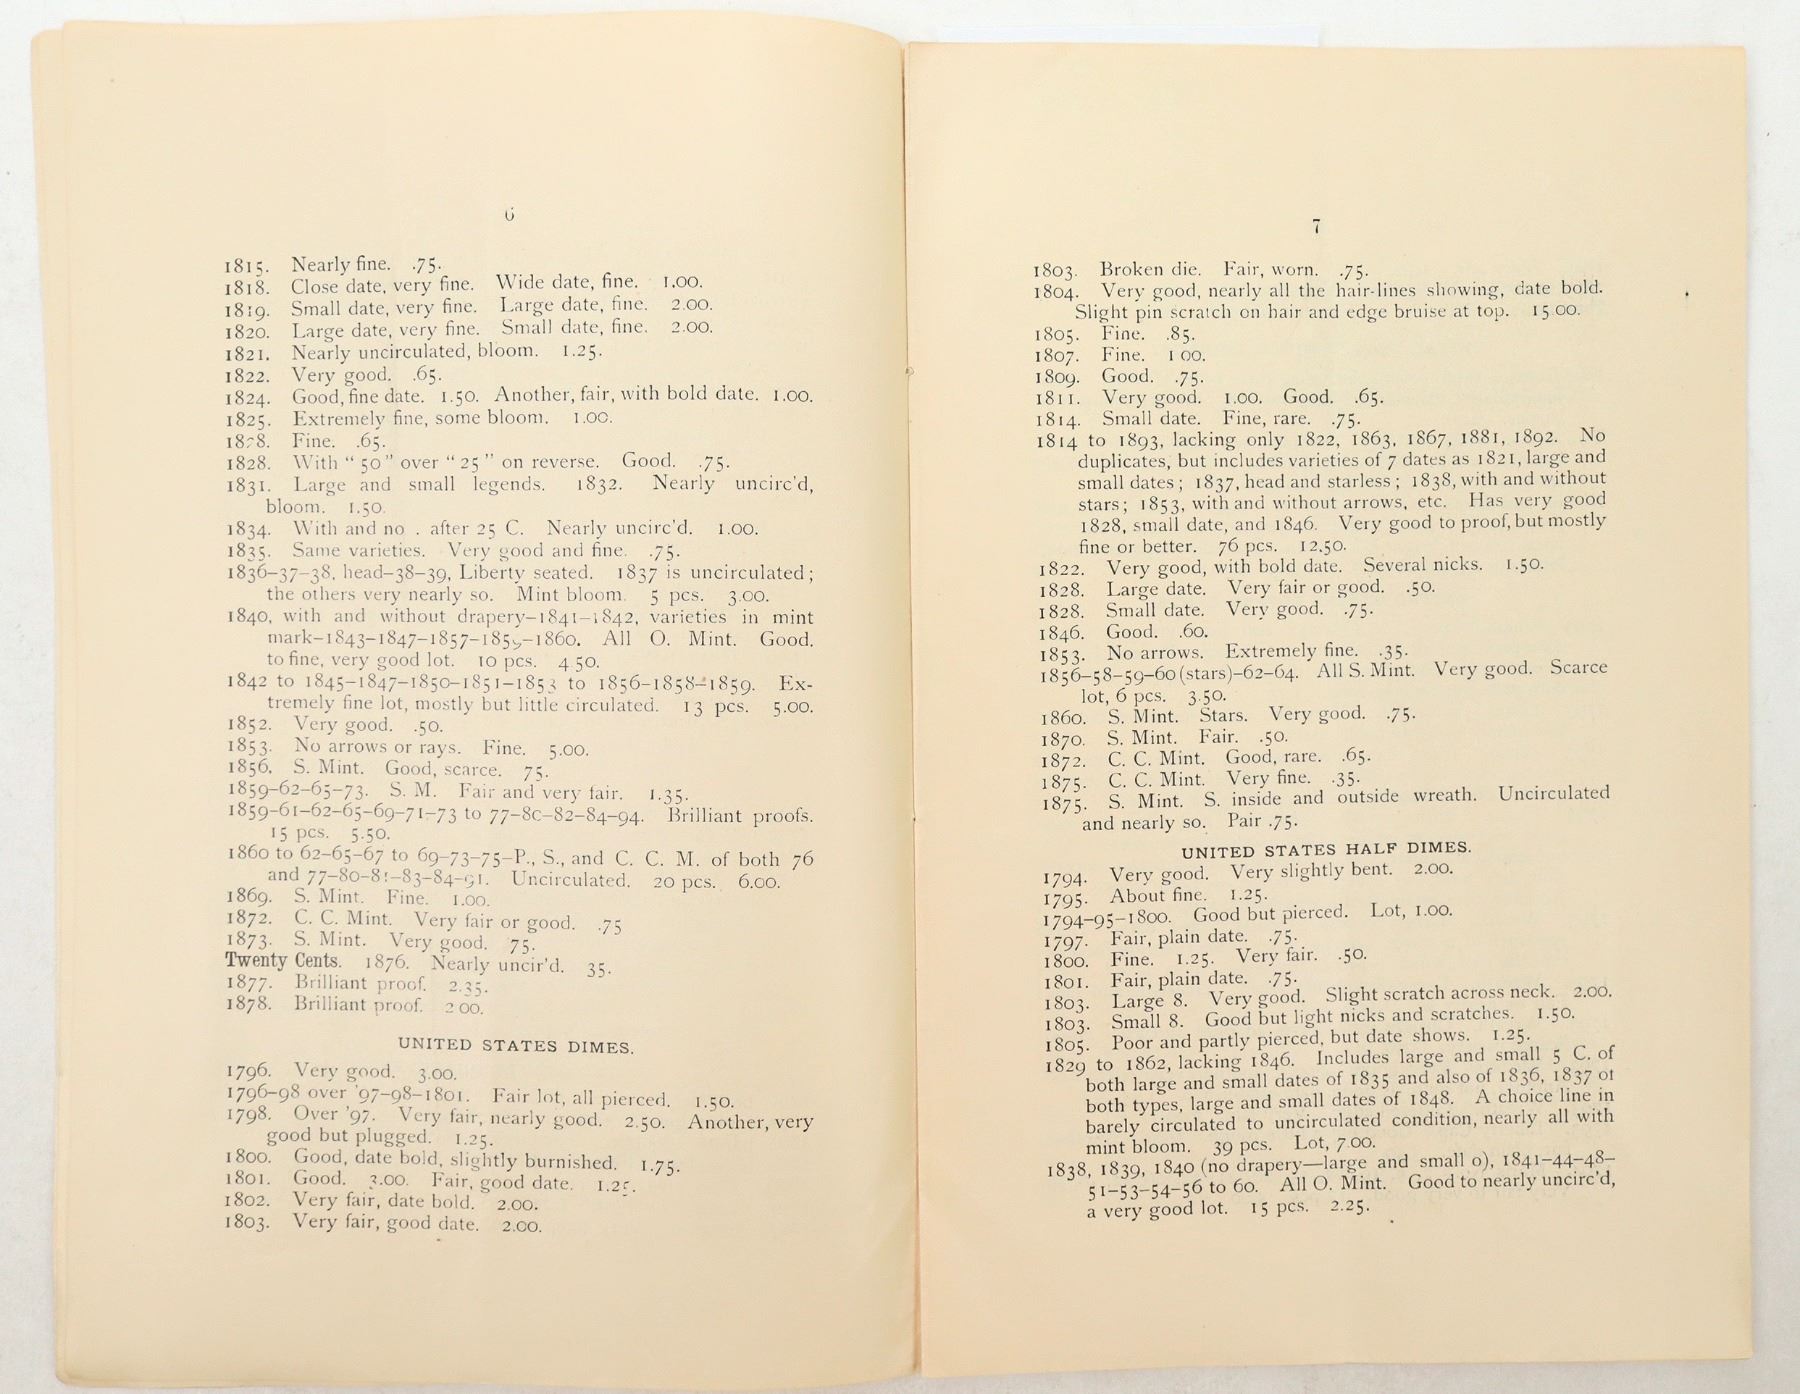 6
1815. Nearly fine. .75.
1818. Close date, very fine. Wide date, fine. 1.00.
1819. Small date, very fine. Large date, fine. 2.00.
1820. Large date, very fine. Small date, fine. 2.00.
1821. Nearly uncirculated, bloom. 1.25.
1822. Very good. .65.
1824. Good, fine date. 1.50. Another, fair, with bold date. 1.00.
1825. Extremely fine, some bloom. 1.00.
Fine. .65.
1828. With “ 50 ” over “ 25 ” on reverse. Good. .75.
1831. Large and small legends. 1832. Nearly uncirc'd,
bloom. 1.50.
1834. With and no . after 25 C. Nearly uncirc'd. 1.00.
1835. Same varieties. Very good and fine. .75.
1836–37–38, head–38–39, Liberty seated. 1837 is uncirculated;
the others very nearly so. Mint bloom. 5 pcs. 3.00.
1840, with and without drapery–1841–1842, varieties in mint
mark–1843–1847–1857–1859–1860. All O. Mint. Good.
to fine, very good lot. 10 pcs. 4 50.
1842 to 1845–1847–1850–1851–1853 to 1856–1858–1859. Ex-
tremely fine lot, mostly but little circulated. 13 pcs. 5.00.
1852. Very good. .50.
1853. No arrows or rays. Fine. 5.00.
1856. S. Mint. Good, scarce. 75.
1859–62–65–73. S. M. Fair and very fair. 1.35.
1859–61–62–65–69–71–73 to 77–80–82–84–94. Brilliant proofs.
15 pcs. 5.50.
1860 to 62–65–67 to 69–73–75–P., S., and C. C. M. of both 76
and 77–80–81–83–84–91. Uncirculated. 20 pcs. 6.00.
1869. S. Mint. Fine. 1.00.
1872. C. C. Mint. Very fair or good. .75
1873. S. Mint. Very good. 75.
Twenty Cents. 1876. Nearly uncir'd. 35.
1877. Brilliant proof. 2.35.
1878. Brilliant proof. 2 00.
UNITED STATES DIMES.
1796. Very good. 3.00.
1796–98 over '97–98–1801. Fair lot, all pierced. 1.50.
1798. Over '97. Very fair, nearly good. 2.50. Another, very
good but plugged. 1.25.
1800. Good, date bold, slightly burnished. 1.75.
1801. Good. 3.00. Fair, good date. 1.25.
1802. Very fair, date bold. 2.00.
1803. Very fair, good date. 2.00.
7
1803. Broken die. Fair, worn. .75.
1804. Very good, nearly all the hair-lines showing, date bold.
Slight pin scratch on hair and edge bruise at top. 15 00.
1805. Fine. .85.
1807. Fine. 1 00.
1809. Good. .75.
1811. Very good. 1.00. Good. .65.
1814. Small date. Fine, rare. .75.
1814 to 1893, lacking only 1822, 1863, 1867, 1881, 1892. No
duplicates, but includes varieties of 7 dates as 1821, large and
small dates; 1837, head and starless; 1838, with and without
stars; 1853, with and without arrows, etc. Has very good
1828, small date, and 1846. Very good to proof, but mostly
fine or better. 76 pcs. 12.50.
1822. Very good, with bold date. Several nicks. 1.50.
1828. Large date. Very fair or good. .50.
1828. Small date. Very good. .75.
1846. Good. .60.
1853. No arrows. Extremely fine. .35.
1856–58–59–60 (stars)–62–64. All S. Mint. Very good. Scarce
lot, 6 pcs. 3.50.
1860. S. Mint. Stars. Very good. .75.
1870. S. Mint. Fair. .50.
1872. C. C. Mint. Good, rare. .65.
1875. C. C. Mint. Very fine. .35.
1875. S. Mint. S. inside and outside wreath. Uncirculated
and nearly so. Pair .75.
UNITED STATES HALF DIMES.
1794. Very good. Very slightly bent. 2.00.
1795. About fine. 1.25.
1794–95–1800. Good but pierced. Lot, 1.00.
1797. Fair, plain date. .75.
1800. Fine. 1.25. Very fair. .50.
1801. Fair, plain date. .75.
1803. Large 8. Very good. Slight scratch across neck. 2.00.
1803. Small 8. Good but light nicks and scratches. 1.50.
1805. Poor and partly pierced, but date shows. 1.25.
1829 to 1862, lacking 1846. Includes large and small 5 C. of
both large and small dates of 1835 and also of 1836, 1837 of
both types, large and small dates of 1848. A choice line in
barely circulated to uncirculated condition, nearly all with
mint bloom. 39 pcs. Lot, 7 00.
1838, 1839, 1840 (no drapery—large and small o), 1841–44–48–
51–53–54–56 to 60. All O. Mint. Good to nearly uncirc'd,
a very good lot. 15 pcs. 2.25.